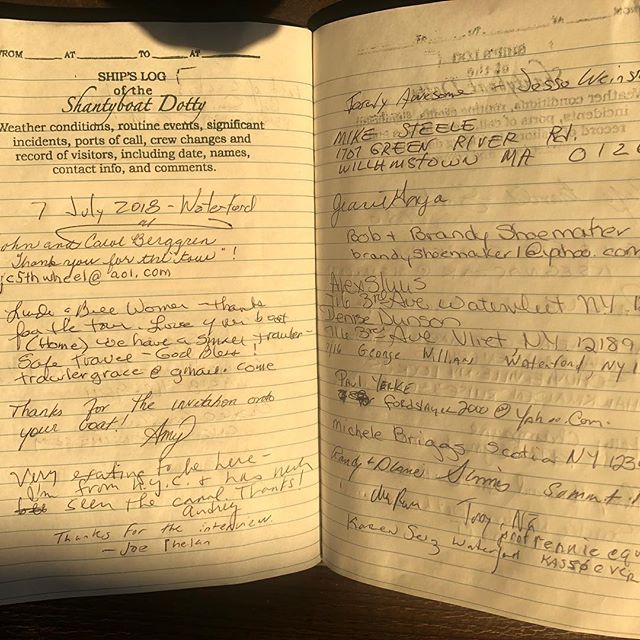 FROM ____ AT ____ TO ____ AT ____
SHIP'S LOG
of the
Shantyboat Dotty
Weather conditions, routine events, significant
incidents, ports of call, crew changes and
record of visitors, including date, names,
contact info, and comments.
7 July 2018 - Waterford
John and Carol Berggren
"Thank you for the tour"!
jc5thwheel@aol.com
thanks
for the tour. Love your boat
(Home) we have a small trawler-
Safe Travel - God Bless!
trawlergrace@gmail.com
Thanks for the invitation onto
your boat! Amy
Very exciting to be here -
I'm from N.Y.C. & has never
seen the canal. Thanks!
Audrey
Thanks for the interview.
- Joe Phelan
Awesome + Jesse
MIKE STEELE
1707 GREEN RIVER Rd.
WILLIAMSTOWN MA 0126
Bob + Brandy Shoemaker
brandyshoemaker1@yahoo.com
Alex
716 3rd Ave, Watervliet NY, 12
Denise
716 3rd Ave Vliet NY 12189
7/16 George Millan Waterford, NY 1
Paul
@yahoo.com.
Michele Briggs Scotia NY 123
+ Diane
Troy, NY
Karen Waterford